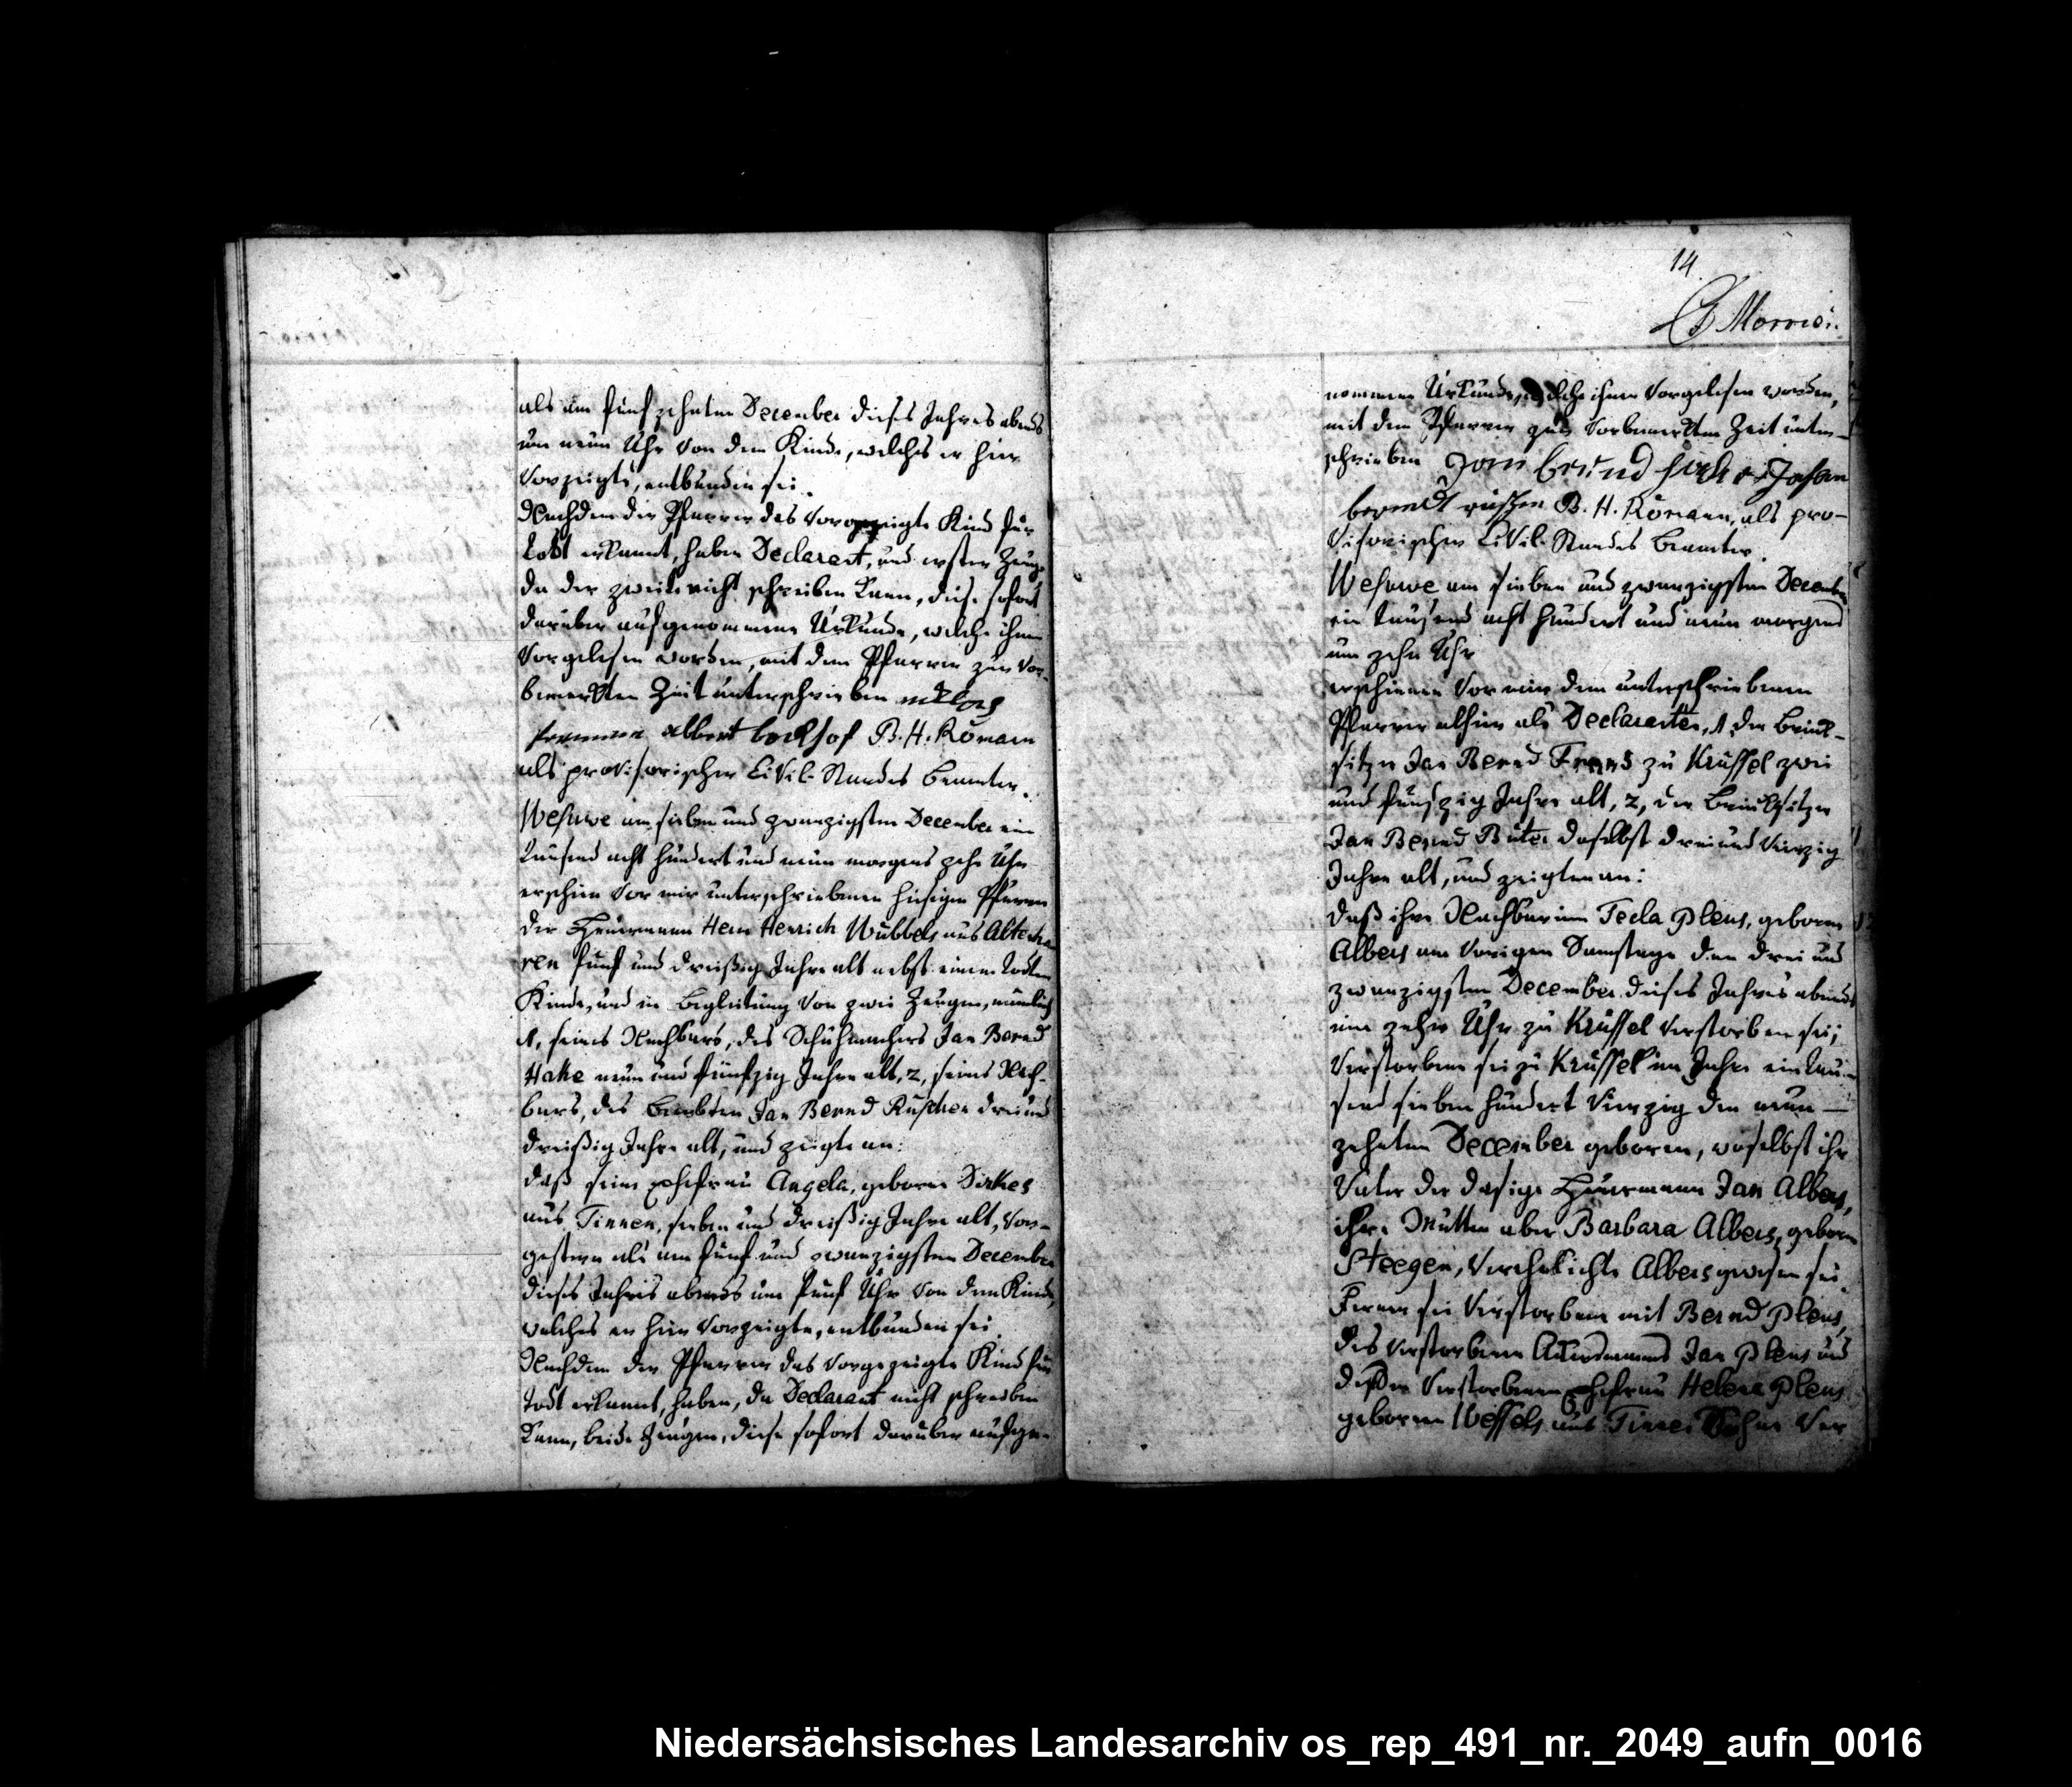 als am fünfzehnten December dieses Jahres abends
um neun Uhr von dem Kinde, welches er hier
vorzeigte, entbunden sei.
Nachdem der Pfarrer das vorgezeigte Kind für
todt erkannt, haben Declarant, und erster Zeuge
da der zweite nicht schreiben kann, diese sofort
darüber aufgenommene Urkunde, welche ihnen
vorgelesen worden, mit dem Pfarrer zur vor-
bemerkten Zeit unterschrieben
albert B. H. Römann
als provisorischer Civil-Standes Beamter.
Wesuwe am sieben und zwanzigsten December ein
tausend acht hundert und neun morgens zehn Uhr
erschien vor mir unterschriebenen hiesigen Pfarrer
der Heuermann Herm Henrich Wübbels aus Alteha
ren fünf und dreißig Jahre alt nebst einem todten
Kinde, und in Begleitung von zwei Zeugen, nämlich
1, seines Nachbars, des Schuhmachers Jan Bernd
Hake neun und fünfzig Jahre alt, 2, seines Nach-
bars, des Jan Bernd Ruschen drei und
dreißig Jahre alt, und zeigte an:
daß seine Ehefrau Angela, geborne Sirkes
aus Tinnen, sieben und dreißig Jahre alt, vor-
gestern als am fünf und zwanzigsten December
dieses Jahres abends um fünf Uhr von dem Kinde,
welches er hier vorzeigte, entbunden sei.
Nachdem der Pfarrer das vorgezeigte Kind für
todt erkannt, haben, da Declarant nicht schreiben
kann, beide Zeugen, diese sofort darüber aufge-
14.
nommene Urkunde, welche ihnen vorgelesen worden,
mit dem Pfarrer zur vorbemerkten Zeit unter-
schrieben Johan
berndt B. H. Römann, als pro-
visorischer Civil-Standes Beamter.
Wesuwe am sieben und zwanzigsten December
ein tausend acht hundert und neun morgens
um zehn Uhr
erschienen vor mir dem unterschriebenen
Pfarrer alhier als Declaranten, 1, der Brink-
sitzer Jan Bernd Frans zu Krüssel zwei
und fünfzig Jahre alt, 2, der Brinksitzer
Jan Bernd Büter daselbst drei und vierzig
Jahre alt, und zeigten an:
daß ihre Nachbarinn Tecla Plens, geborne
Albers am vorigen Samstage den drei und
zwanzigsten December dieses Jahres abends
um zehn Uhr zu Krüssel verstorben sei;
Verstorbene sei zu Krüssel im Jahre ein tau-
send sieben hundert vierzig den neun-
zehnten December geboren, woselbst ihr
Vater der dasige Heuermann Jan Albers,
ihre Mutter aber Barbara Albers, geborne
Steegen, verehelichte Albers gewesen sei.
Ferner sei Verstorbene mit Bernd Plens,
des verstorbenen Ackersmanns Jan Plens und
dessen verstorbenen Ehefrau Helena Plens
geborene Wessels aus Tinnen Sohne ver
Niedersächsisches Landesarchiv os_rep_491_nr._2049_aufn_0016